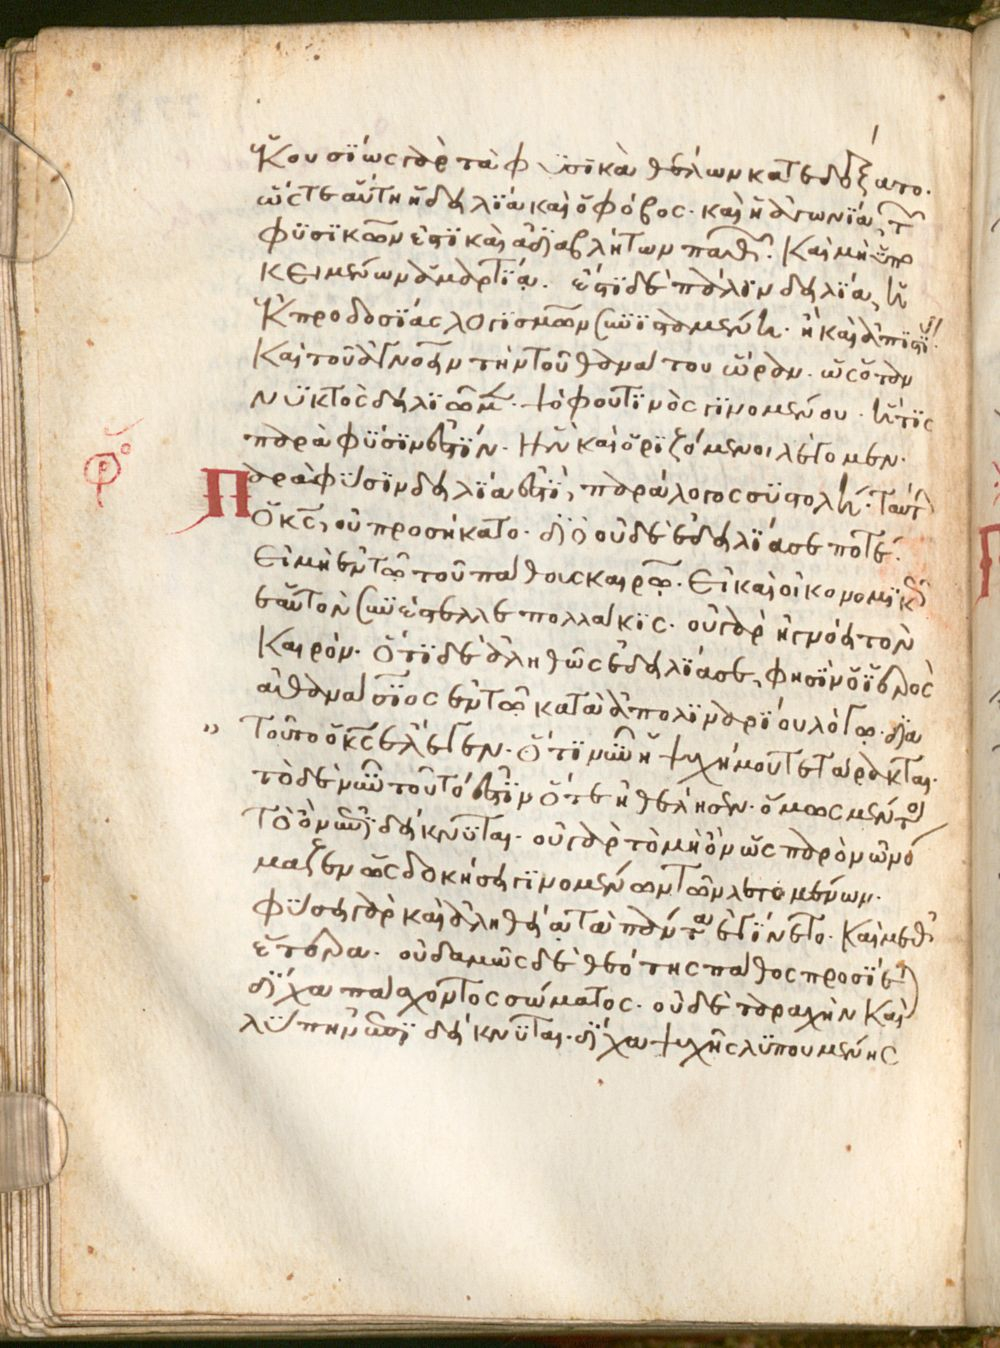 Ἑκουσίως γὰρ τὰ φυσικὰ θέλων κατεδέξατο·
ὥστε αὕτη ἡ δειλία καὶ ὁ φόβος· καὶ ἡ ἀγωνία, τῶν
φυσικῶν ἐστι καὶ ἀδιαβλήτων παθῶν. Καὶ μὴ ὑπο
κειμένων ἁμαρτία. ἔστι δὲ πάλιν δειλία, ἡ
ἐκ προδοσίας λογισμῶν συνισταμένη· ἢ καὶ ἀπιστίας·
Καὶ τοῦ ἀγνοεῖν τὴν τοῦ θανάτου ὥραν· ὡς ὅταν
νυκτὸς δειλιῶμεν· ψόφου τινὸς γινομένου· ἥτις
παρὰ φύσιν ἐστίν· Ἣν καὶ ὁριζόμενοι λέγομεν·
Παρὰ φύσιν δειλία ἐστὶ, παράλογος συστολή· ταύτην
ὁ κς, οὐ προσήκατο· διὸ οὐδὲ ἐδειλίασε ποτέ·
Εἰ μὴ ἐν τῷ τοῦ πάθους καιρῷ· Εἰ καὶ οἰκονομικῶς
ἑαυτὸν συνέστελλε πολλάκις· οὐ γὰρ ἠγνόει τὸν
Καιρόν· Ὅτι δὲ ἀληθῶς ἐδειλίασε, φησὶν ὁ ἱερὸς
ἀθανάσιος ἐν τῷ κατὰ ἀπολιναρίου λόγῳ· διὰ
τοῦτο ὁ κς ἔλεγεν· Ὅτι νῦν ἡ ψυχή μου τετάρακται·
τὸ δὲ νῦν τοῦτό ἐστιν ὅτε ἠθέλησεν· ὅμως μέντοι
τὸ ὂν ἐπιδείκνυται· οὐ γὰρ τὸ μὴ ὂν ὡς παρὸν ὠνό
μαζεν ὡς δοκήσει γινομένων τῶν λεγομένων·
Φύσει γὰρ καὶ ἀληθείᾳ τὰ πάντα ἐγίνετο· Καὶ μεθ'
ἕτερα· οὐδαμῶς δὲ θεότης πάθος προσίεται
δίχα πάσχοντος σώματος· οὐδὲ ταραχὴν Καὶ
λύπην ἐπιδείκνυται· δίχα ψυχῆς λυπουμένης